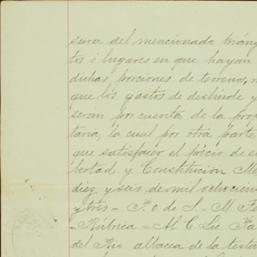 sura del mencionado triáng
tos i lugares en que hayan
dichas porciones de terreno,
que los gastos de deslinde y
serán por cuenta de la prop
taria, la cual por otra parte
que satisfacer el précio de
bertad y Constitucion Mé
diez y seis de mil ochocien
y tres — F. o de S. — M. Fe
— Rúbrica — M C Lic Fa
del Rio albacea de la testa